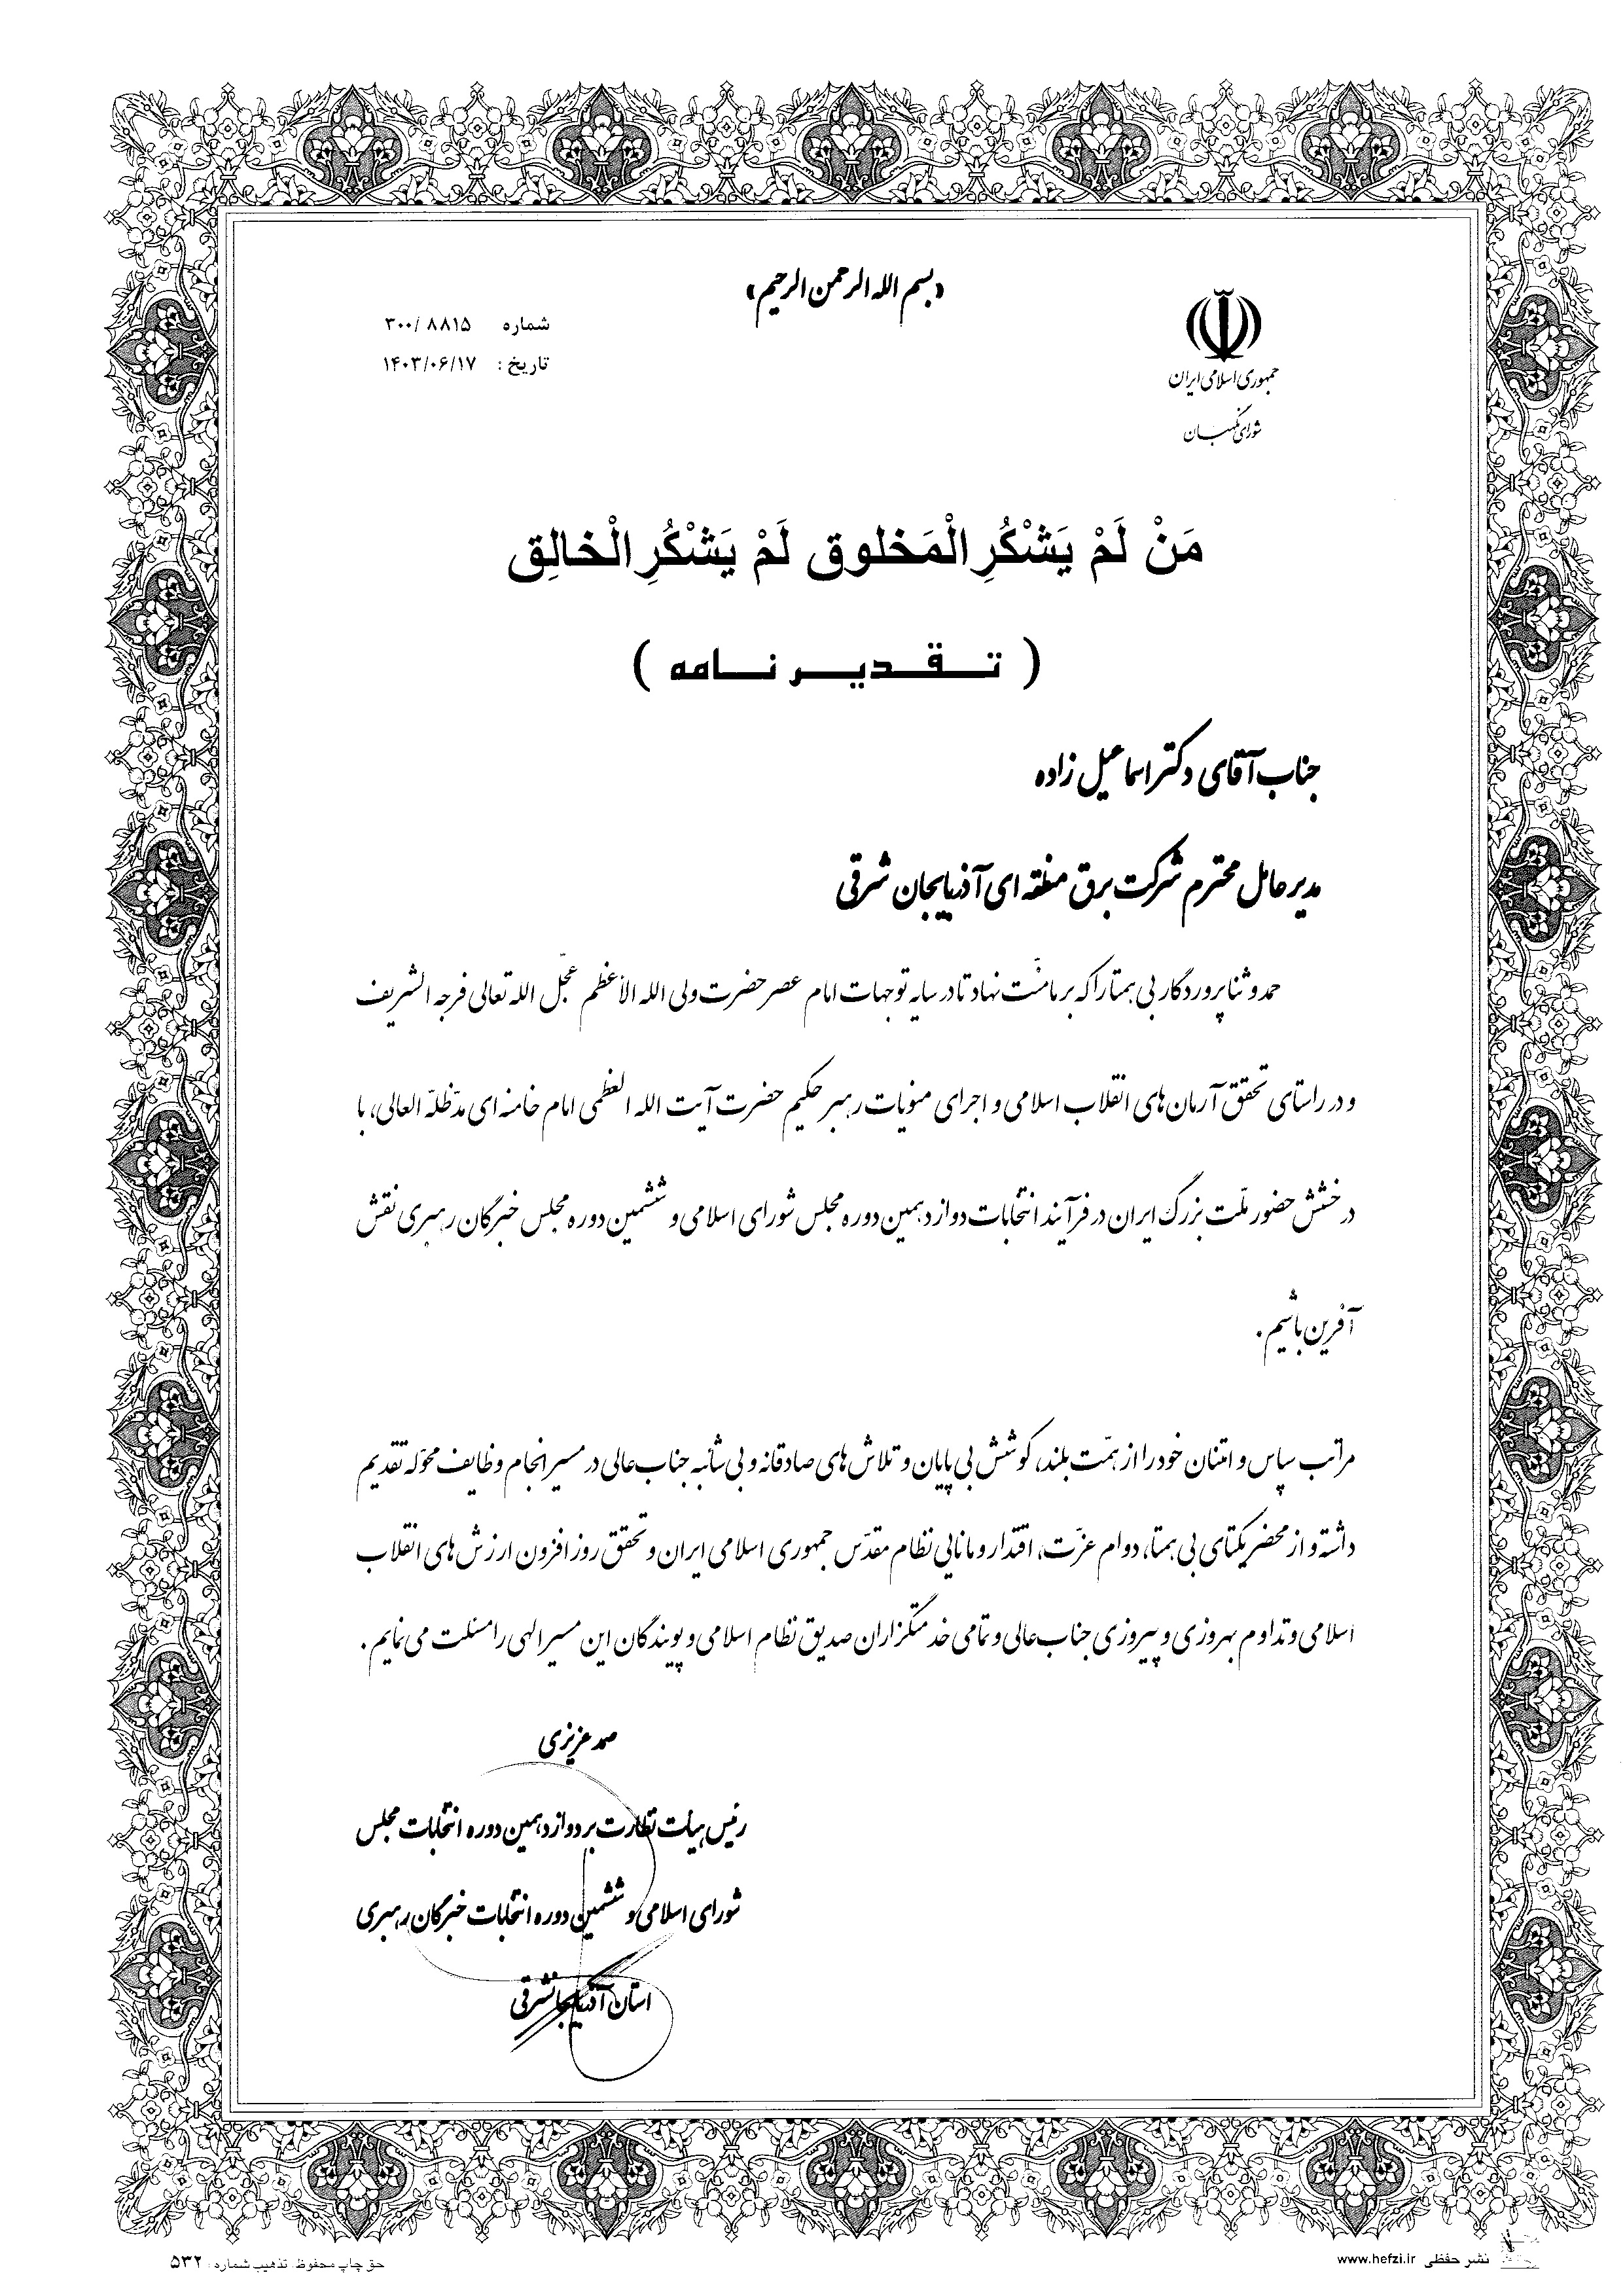 «بسم الله الرحمن الرحیم»
جمهوری اسلامی ایران
شورای نگهبان
شماره ۳۰۰/ ۸۸۱۵
تاریخ : ۱۴۰۳/۰۶/۱۷
مَنْ لَمْ یَشْکُرِ الْمَخلوق لَمْ یَشْکُرِ الْخالِق
( تـقـدیـر نـامه )
جناب آقای دکتر اسماعیل زاده
مدیر عامل محترم شرکت برق منطقه ای آذربایجان شرقی
حمد و ثنا پروردگار بی همتا را که بر ما منّت نهاد تا در سایه توجهات امام عصر حضرت ولی الله الأعظم عجّل الله تعالی فرجه الشریف
و در راستای تحقق آرمان های انقلاب اسلامی و اجرای منویات رهبر حکیم حضرت آیت الله العظمی امام خامنه ای مدّظلّه العالی، با
درخشش حضور ملّت بزرگ ایران در فرآیند انتخابات دوازدهمین دوره مجلس شورای اسلامی و ششمین دوره مجلس خبرگان رهبری نقش
آفرین باشیم.
مراتب سپاس و امتنان خود را از همّت بلند، کوشش بی پایان و تلاش های صادقانه و بی شائبه جناب عالی در مسیر انجام وظایف محوّله تقدیم
داشته و از محضر یکتای بی همتا، دوام عزّت، اقتدار و مانایی نظام مقدّس جمهوری اسلامی ایران و تحقق روزافزون ارزش های انقلاب
اسلامی و تداوم بهروزی و پیروزی جناب عالی و تمامی خدمتگزاران صدیق نظام اسلامی و پویندگان این مسیر الهی را مسئلت می نمایم.
صمد عزیزی
رئیس هیأت نظارت بر دوازدهمین دوره انتخابات مجلس
شورای اسلامی و ششمین دوره انتخابات خبرگان رهبری
استان آذربایجانشرقی
نشر حفظی www.hefzi.ir
حق چاپ محفوظ. تذهیب شماره : ۵۳۲